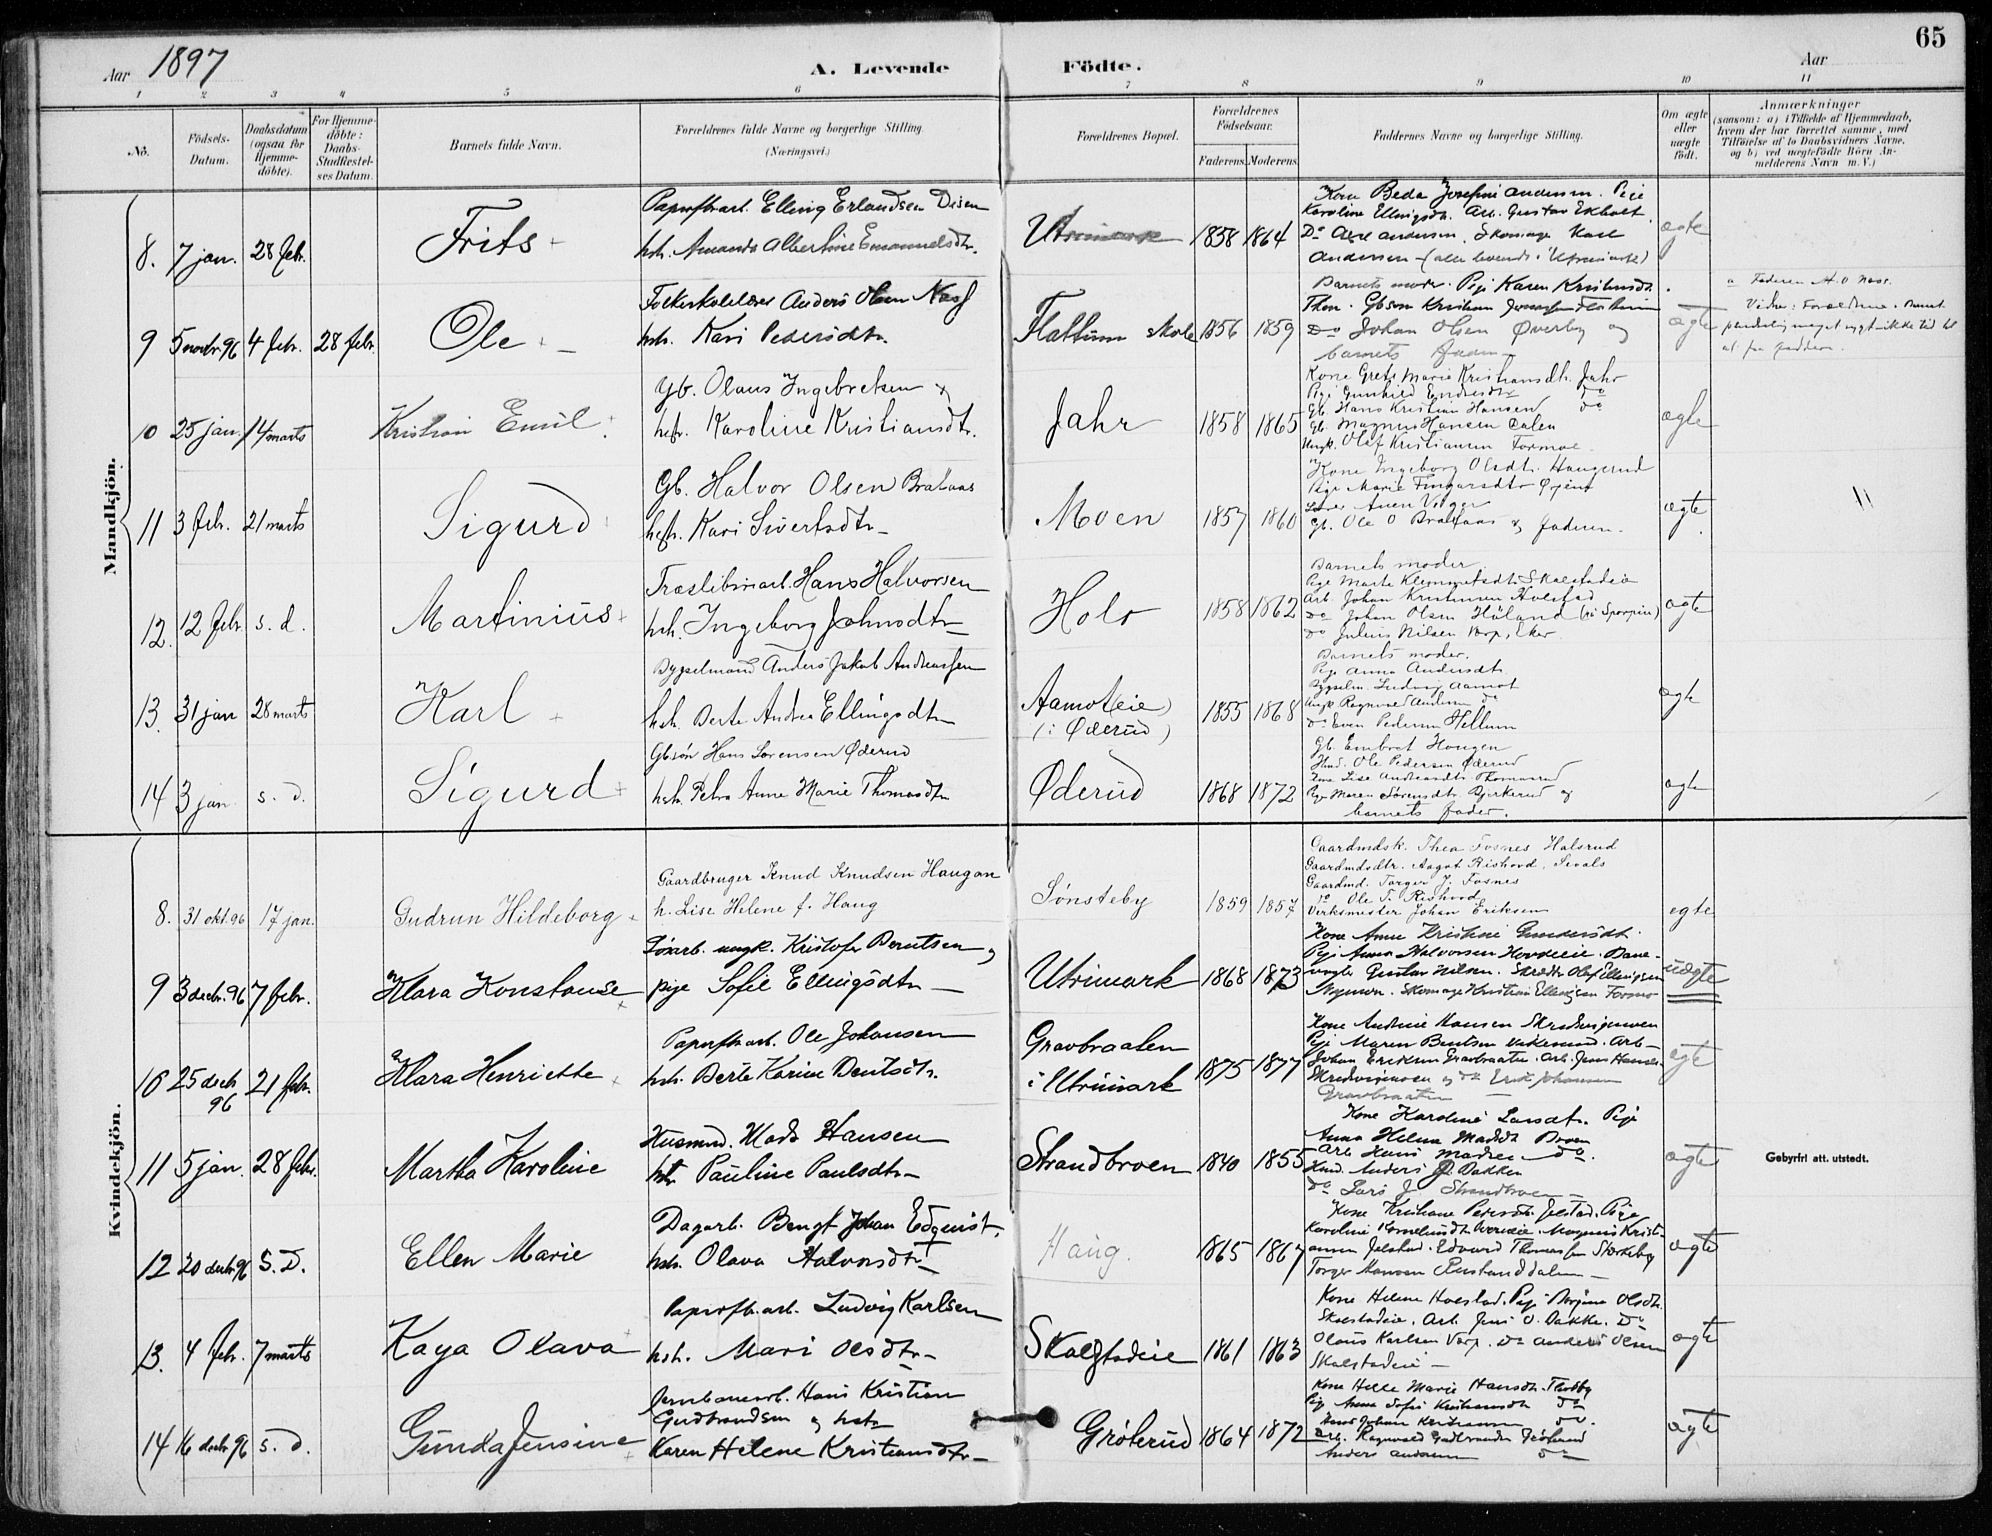 65
Aar 1897
A. Levende Födte.
Aar
1 2 3 4 5 6 7 8 9 10 11
Nö.
Födsels-Datum.
Daabsdatum (ogsaa for Hjemme-döbte).
For Hjemme-döbte: Daabs-Stadfæstel-ses Datum.
Barnets fulde Navn.
Forældrenes fulde Navne og borgerlige Stilling.
(Næringsvei.)
Forældrenes Bopæl.
Forældrenes Födselsaar.
Faderens. Moderens.
Faddernes Navne og borgerlige Stilling.
Om ægte eller uægte födt.
Anmærkninger
(saasom: a) i Tilfælde af Hjemmedaab, hvem der har forrettet samme, med Tilföielse af to Daabsvidners Navne, og b) ved uægtefödte Börn An-melderens Navn m. V.)
Mandkjön.
8. 7 jan. 28 febr. Frits
Elling Erlandsen Disen
hstr. Amanda Albertine Emanuelsdtr.
Utrimark 1858 1864
Kone Beda Josefine Andersen. Pige
Karoline Ellingsdtr. Arb. Gustav Ekholt
Andersen (alle boende i Utrimark)
ægte
9 5 novbr. 96 4 febr. 28 febr. Ole
Folkeskolelærer Anders Olsen Næss
hstr. Kari Pedersdtr.
Flattum skole 1856 1859
Barnets moder. Pige Karen Kristensdtr.
Do Johan Olsen Øverby og
barnets fader
ægte
a Faderen A. O. Næss.
10 25 jan. 14 marts Kristian Emil
Gb. Olaus Ingebretsen &
hstr. Karoline Kristiansdtr.
Jahr 1858 1865
Kone Grete Marie Kristiansdtr. Jahr
Gb. Hans Kristian Hansen do
Gb. Magnus Hansen Dalen
Ungk. Olaf Kristiansen Formoe
ægte
11 3 febr. 21 marts Sigurd
Gb. Halvor Olsen Braataas
hstr. Kari Sivertsdtr.
Moen 1857 1860
Kone Ingeborg Olsdtr. Haugerud
Gb. Ole O Braataas & faderen.
ægte
12. 12 febr. s. d. Martinius
Træsliberiarb. Hans Halvorsen
hstr. Ingeborg Johnsdtr.
Holo 1858 1862
Barnets moder
Pige Marte Klemmetsdtr. Skalstadeie
Arb. Johan Kristensen Holstad
Do Johan Olsen Høland
Do Julius Nilsen Vorp, Eker
ægte
13. 31 jan 28 marts Karl
Bygselmand Anders Jakob Andreassen
hstr. Berte Andrea Ellingsdtr.
Aamoteie
(i Øderud)
1855 1868
Barnets moder.
Pige Anna Andersdtr.
Bygselm. Ludvig Aamot
Do Even Pedersen Hellum
ægte
14 3 jan. s. d. Sigurd
Gbsøn Hans Sørensen Øderud
hstr. Petra Anne Marie Thomasdtr
Øderud 1868 1872
Gb. Embret Hougen
Husd. Ole Pedersen Øderud
Pige Maren Sørensdtr. Bjerkerud og
barnets fader.
ægte
Kvindekjön.
8. 31 okt. 96 17 jan. Gudrun Hildeborg
Gaardbruger Knud Knudsen Haugan
h. Lise Helene f. Haug
Sønsteby 1859 1857
Gaardmdsk. Thea Fosnes Halsrud
Gaardmdsdtr. Aagot Rishovd, Sevals
Gaardmd. Torger J. Fosnes
Do Ole T. Rishovd
Verksmester Johan Eriksen
egte
9 3 decbr. 96 7 febr. Klara Konstanse
ungk. Kristofer Berntsen og
pige Sofie Ellingsdtr
Utrimark 1868 1873
Kone Anne Kristine Gundersdtr.
Pige Anna Halvorsen Hovdeeie. Bane-
vogter Gustav Nilsen. Skrædder Olaf Ellingsen
Nymoen. Skomager Kristian Ellingsen Formo
uægte
10 25 decb 96 21 febr. Klara Henriette
Papirfbr.arb. Ole Johansen
hstr. Berte Karine Berntsdtr.
Gravbraaten
i Utrimark
1875 1877
Kone Andrine Hansen Skredvigmoen
Johan Eriksen Gravbraaten. Arb. Jens Hansen
Skredvigmoen og do Erik Johansen
Gravbraaten
egte
11 5 jan. 28 febr. Martha Karoline
Husmd. Mads Hansen
hstr Pauline Paulsdtr
Strandbroen 1840 1855
Kone Karoline Larsdtr. Pige
Anna Helene Madsdtr Broen
Arb Hans Madsen do.
Husmd. Anders J. Bakken
Do Lars J. Strandbroen
ægte
Gebyrfri att. utstedt.
12 20 decbr 96 S. D. Ellen Marie
Dagarb. Bengt Johan Edquist.
hstr. Olava Halvorsdtr
Haug. 1865 1867
Kone Kristiane Pedersdtr. Jelstad. Pige
Jelstad. Edvard Thomassen Storkeby
Torger Hansen Rustanddalen
ægte
13. 4 febr. 7 marts Kaya Olava
Papirfbr.arb. Ludvig Karlsen
hstr. Mari Olsdtr
Skalstadeie 1861 1863
Kone Helene Holstad. Pige Borgine Olsdtr.
Skalstadeie. Arb. Jens O. Bakke. Do
Olaus Karlsen Vorp. Do Anders Olsen
Skalstadeie
ægte
14 16 decbr 96 s. d. Gunda Jensine
Jernbanearb. Hans Kristian
Gudbrandsen og hstr
Karen Helene Kristiansdtr
Grøterud 1864 1872
Kone Helle Marie Hansdtr.
Pige Anne Sofie Kristiansdtr do
Johan Kristiansen do.
Arb. Ragnvald Gudbrandsen Grøterud
Anders Andersen do
ægte